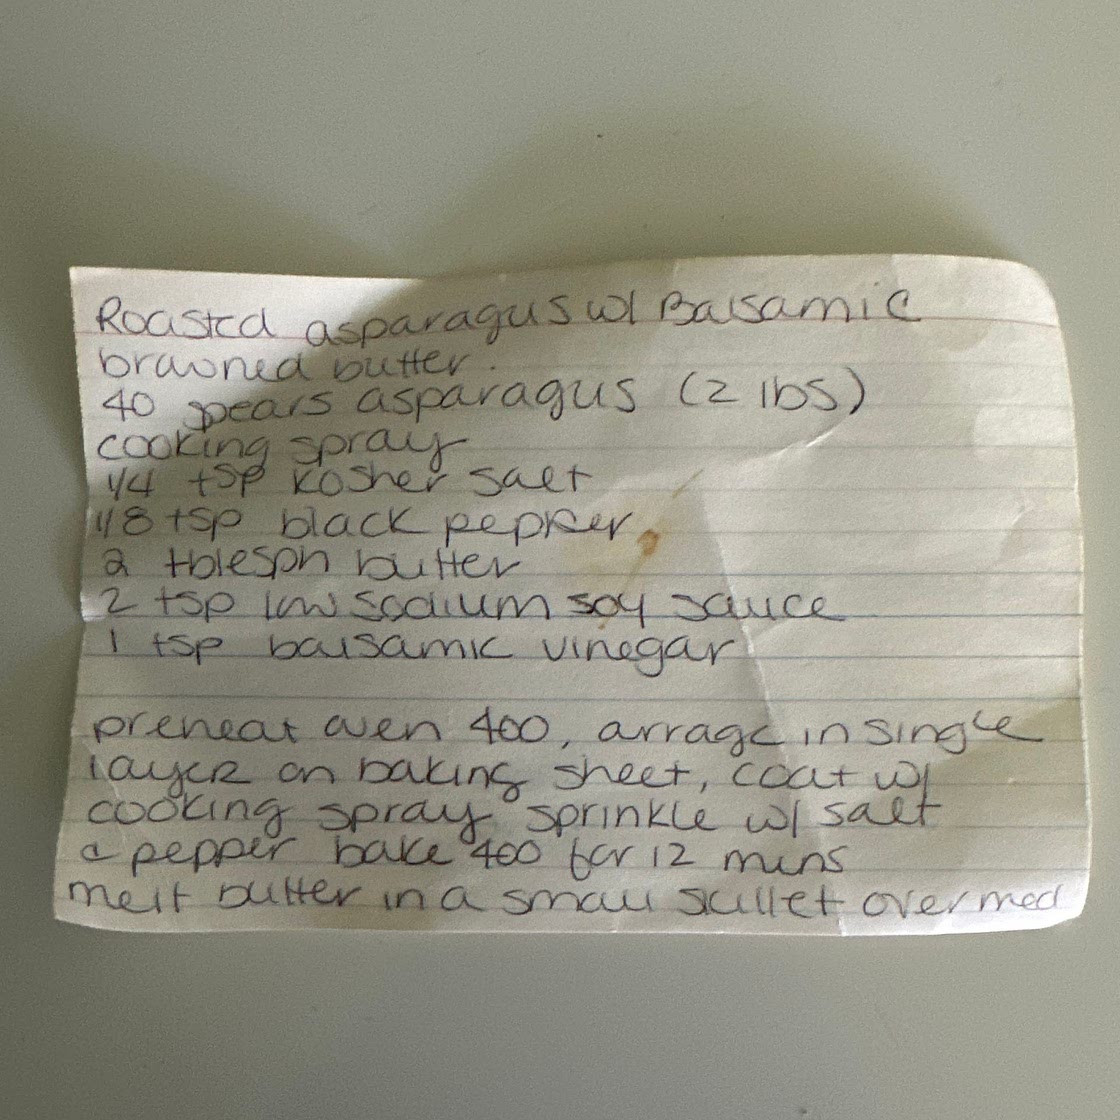 Roasted asparagus w/ Balsamic
browned butter.
40 spears asparagus (2 lbs)
cooking spray
1/4 tsp kosher salt
1/8 tsp black pepper
2 tblespn butter
2 tsp low sodium soy sauce
1 tsp balsamic vinegar
preheat oven 400, arrage in single
layer on baking sheet, coat w/
cooking spray, sprinkle w/ salt
& pepper bake 400 for 12 mins
melt butter in a small skillet over med